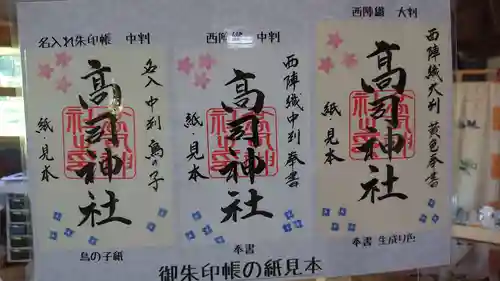 名入れ朱印帳　中判
西陣織　中判
西陣織　大判
高司神社
名入中判鳥の子
紙見本
高司神社
西陣織中判奉書
紙見本
高司神社
西陣織大判黄色奉書
紙見本
鳥の子紙
奉書
奉書 生成り色
御朱印帳の紙見本